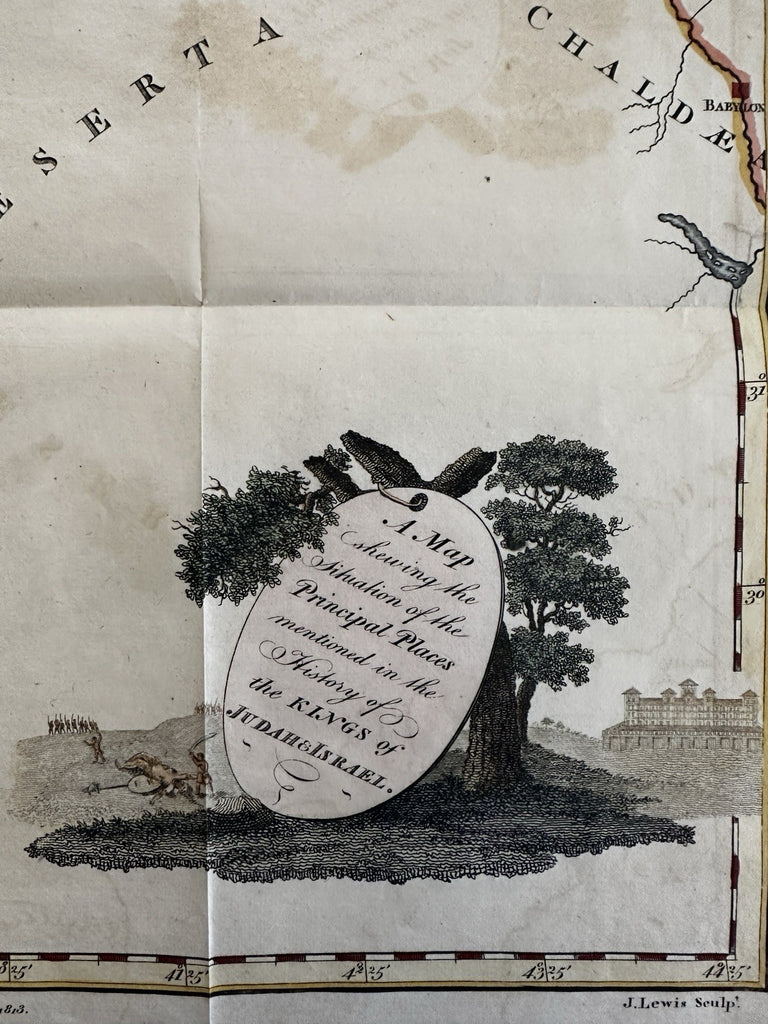 ESERTA
CHALDÆA
BABYLON
31
30
A Map
shewing the
Situation of the
Principal Places
mentioned in the
History of
the KINGS of
JUDAH & ISRAEL.
25'
41 25'
42 25'
43 25'
44 25'
1813.
J. Lewis Sculpt.